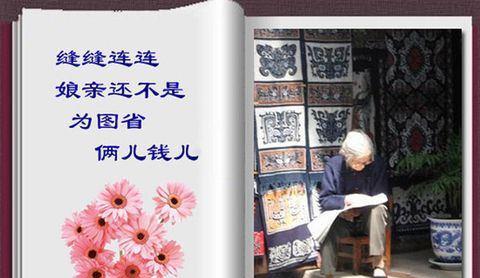 缝缝连连
娘亲还不是
为图省
俩儿钱儿